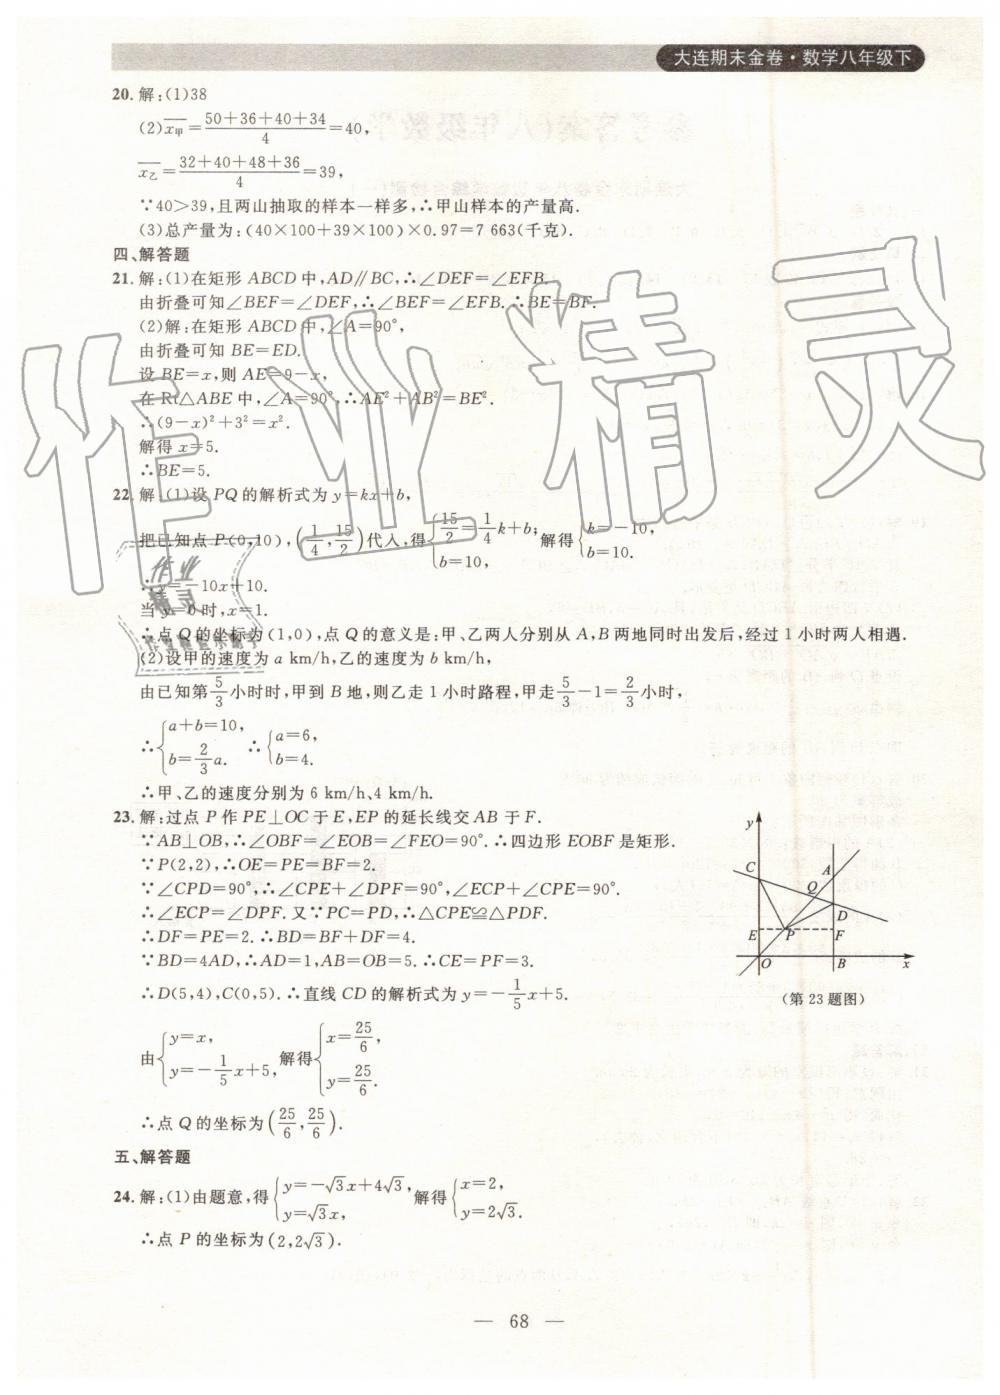 大连期末金卷·数学八年级下
20. 解:(1)38
(2)x甲=(50+36+40+34)/4=40,
x乙=(32+40+48+36)/4=39,
∵40>39,且两山抽取的样本一样多,∴甲山样本的产量高.
(3)总产量为:(40×100+39×100)×0.97=7 663(千克).
四、解答题
21. 解:(1)在矩形 ABCD 中,AD∥BC,∴∠DEF=∠EFB.
由折叠可知∠BEF=∠DEF,∴∠BEF=∠EFB.∴BE=BF.
(2)解:在矩形 ABCD 中,∠A=90°,
由折叠可知 BE=ED.
设 BE=x,则 AE=9-x,
在 Rt△ABE 中,∠A=90°,∴AE²+AB²=BE².
∴(9-x)²+3²=x².
解得 x=5.
∴BE=5.
22. 解:(1)设 PQ 的解析式为 y=kx+b,
把已知点 P(0,10),(1/4,15/2)代入,得{15/2=1/4k+b, b=10, 解得{k=-10, b=10.
∴y=-10x+10.
当 y=0时,x=1.
∴点 Q的坐标为(1,0),点 Q的意义是:甲、乙两人分别从 A,B 两地同时出发后,经过 1 小时两人相遇.
(2)设甲的速度为 a km/h,乙的速度为 b km/h,
由已知第5/3小时时,甲到 B 地,则乙走 1 小时路程,甲走5/3-1=2/3小时,
∴{a+b=10, b=2/3a. ∴{a=6, b=4.
∴甲、乙的速度分别为 6 km/h、4 km/h.
23. 解:过点 P 作 PE⊥OC 于 E,EP 的延长线交 AB 于 F.
∵AB⊥OB,∴∠OBF=∠EOB=∠FEO=90°.∴四边形 EOBF 是矩形.
∵P(2,2),∴OE=PE=BF=2.
∵∠CPD=90°,∴∠CPE+∠DPF=90°,∠ECP+∠CPE=90°.
∴∠ECP=∠DPF.又∵PC=PD,∴△CPE≌△PDF.
∴DF=PE=2.∴BD=BF+DF=4.
∵BD=4AD,∴AD=1,AB=OB=5.∴CE=PF=3.
∴D(5,4),C(0,5).∴直线 CD 的解析式为 y=-1/5x+5.
由{y=x, y=-1/5x+5, 解得{x=25/6, y=25/6.
∴点 Q 的坐标为(25/6,25/6).
y
C
A
Q
D
E
P
F
O
B
x
(第 23题图)
五、解答题
24. 解:(1)由题意,得{y=-√3x+4√3, y=√3x, 解得{x=2, y=2√3.
∴点 P 的坐标为(2,2√3).
— 68 —
作业精灵
作业
精灵